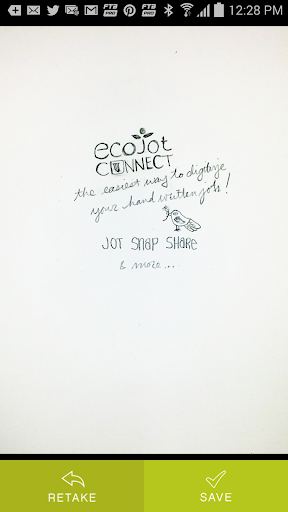 12:28 PM
ecojot
CONNECT
the easiest way to digitize
your hand written jots!
JOT SNAP SHARE
& more...
RETAKE
SAVE